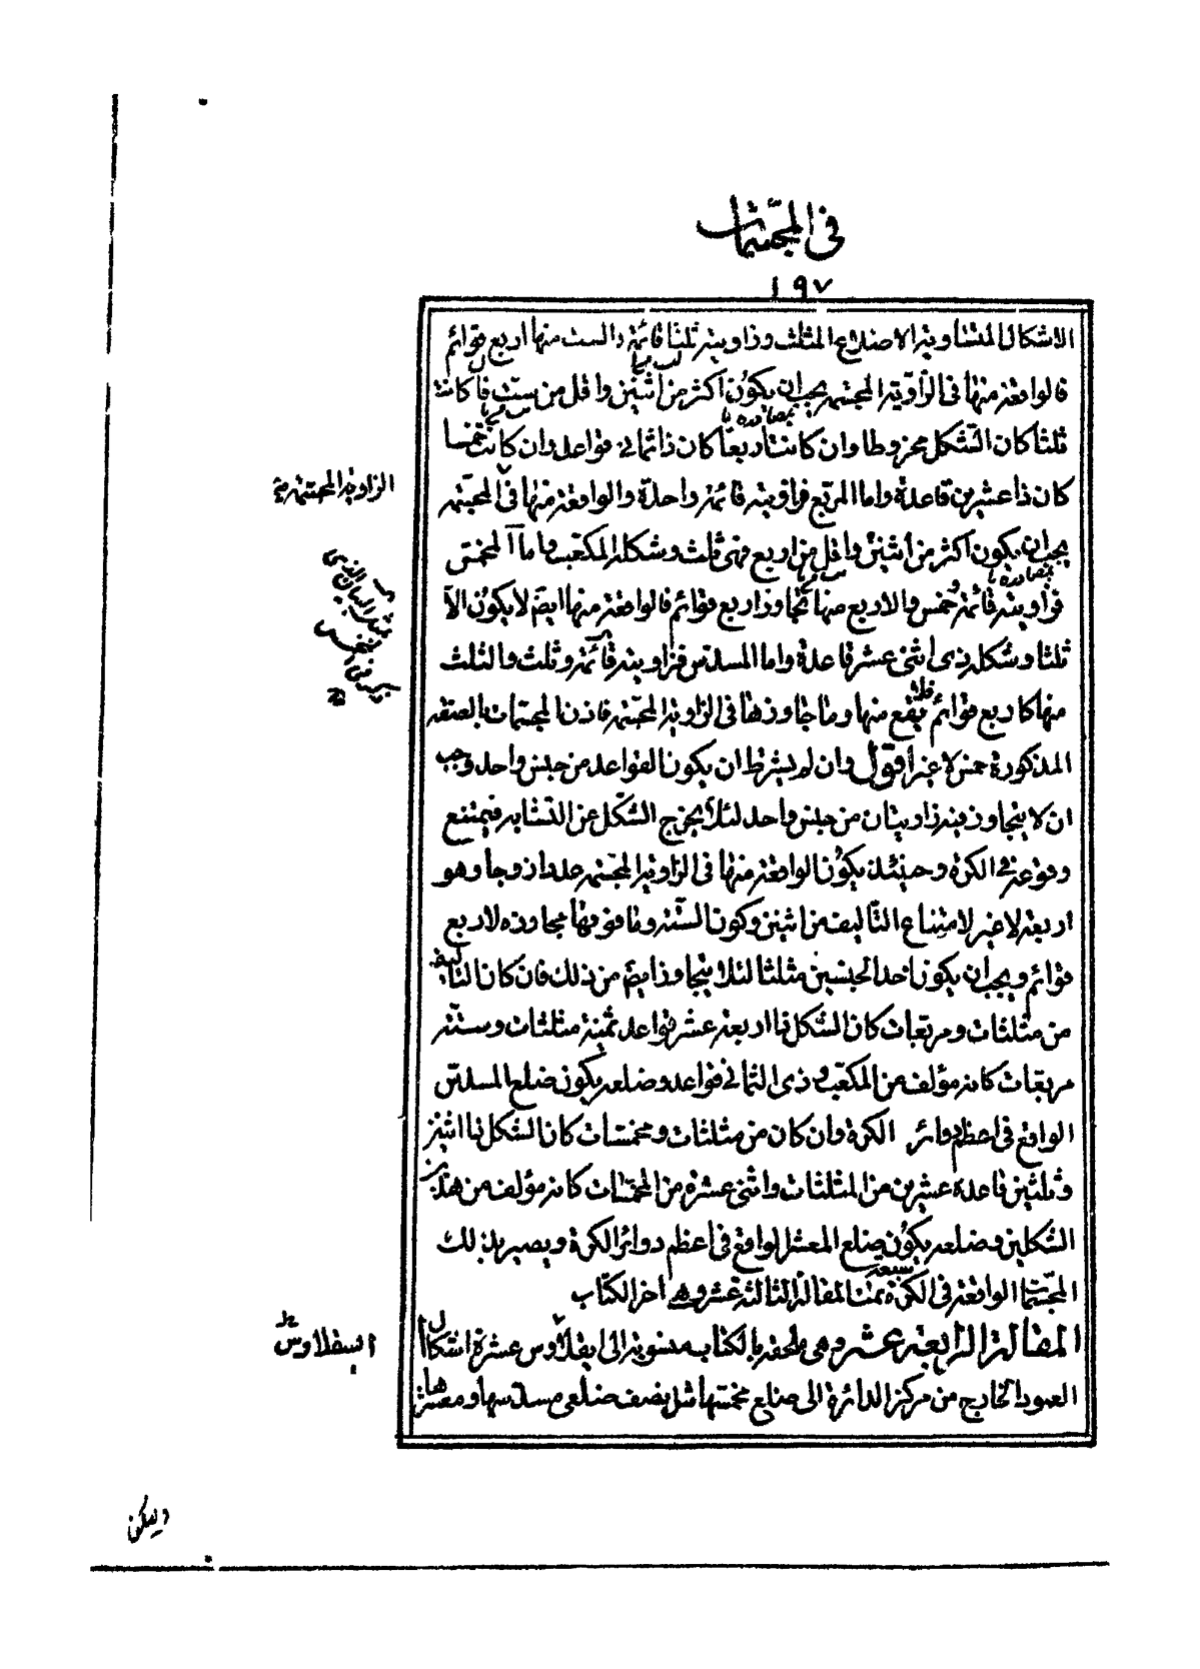 في المجسمات
١٩٧
الاشكال المتساوية الاضلاع المثلث وزاويته ثلثا قائمة والست منها اربع قوائم
فالواقعة منها في الزاوية المجسمة يجب ان يكون اكثر من اثنين واقل من ست فان كانت
ثلثا كان الشكل مخروطا وان كانت اربعا كان ذا ثماني قواعد وان كانت خمسا
كان ذا عشرين قاعدة واما المربع فزاويته قائمة واحدة والواقعة منها في المجسمة
يجب ان يكون اكثر من اثنين واقل من اربع فهي ثلث وشكله المكعب واما المخمس
فزاويته قائمة وخمس والاربع منها تجاوز اربع قوائم فالواقعة منها ايضا لا يكون الا
ثلثا وشكله ذي اثنى عشر قاعدة واما المسدس فزاويته قائمة وثلث والثلث
منها كاربع قوائم فلا يقع منها وما جاوزها في الزاوية المجسمة فاذن المجسمات بالصفة
المذكورة خمس لا غير اقول وان لم يشرط ان يكون القواعد من جنس واحد وجب
ان لا يتجاوز فيه زاويتان من جنس واحد لئلا يخرج الشكل عن التشابه فيمتنع
وقوعه في الكرة وحينئذ يكون الواقعة منها في الزاوية المجسمة عددا زوجا وهو
اربعة لا غير لامتناع التأليف من اثنين وكون الستة وما فوقها مجاوزه لاربع
قوائم ويجب ان يكون احد الجنسين مثلثا لئلا يتجاوز ايضا من ذلك فان كان التأليف
من مثلثات ومربعات كان الشكل ذا اربعة عشر قواعد ثمنية مثلثات وستة
مربعات كانه مؤلف من المكعب وذي الثماني قواعد وضلعه يكون ضلع المسدس
الواقع في اعظم دوائر الكرة وان كان من مثلثات ومخمسات كان الشكل ذا اثنين
وثلثين قاعدة عشرين من المثلثات واثنى عشرة من المخمسات كانه مؤلف من هذين
الشكلين وضلعه يكون ضلع المعشر الواقع في اعظم دوائر الكرة ويصير بذلك
المجسمات الواقعة في الكرة سبعة تمت المقالة الثالثة عشر وهي اخر الكتاب
المقالة الرابعة عشر وهي ملحقة بالكتاب منسوبة الى ابقلاوس عشرة اشكال ا
العمود الخارج من مركز الدائرة الى ضلع مخمسها مثل نصف ضلعي مسدسها ومعشرها
الزاوية المجسمة
اسقلاوس
وليكن